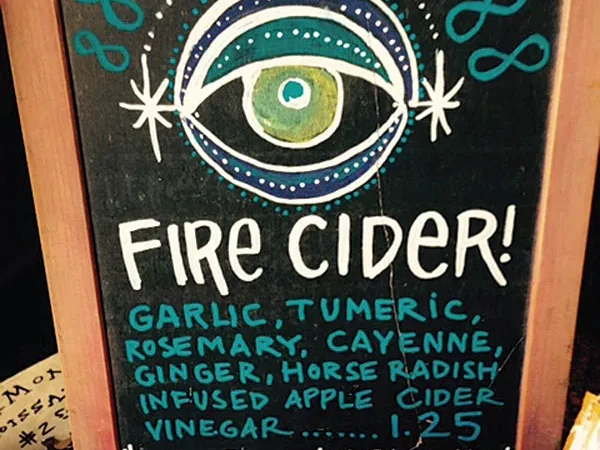 FIRE CIDER!
GARLIC, TUMERIC,
ROSEMARY, CAYENNE,
GINGER, HORSE RADISH
INFUSED APPLE CIDER
VINEGAR....... 1.25